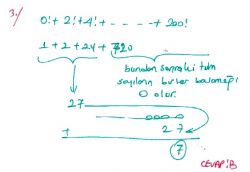 3./
0!+2!+4!+ - - - - - +200!
1+2+24+720
bundan sonraki tüm
sayıların birler basamağı
0 olur.
27
0000
+ 27
7
CEVAP:B